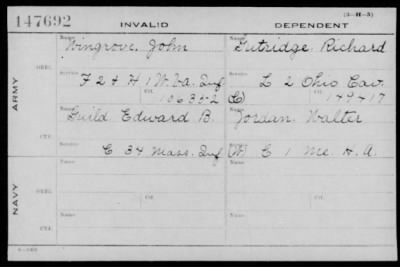 147692
INVALID
DEPENDENT
(3-H-5)
ARMY
NAVY
Name
Wingrove, John
Service
F 2 & H 1 W. Va. Inf
Ctf.
Name
Gutridge Richard
Service
L 2 Ohio Cav.
(C) 149417
Name
Guild Edward B.
Service
C 34 Mass. Inf
Name
Jordan Walter
Service
(W) C 1 Me. H. A.
Name
Name
Service
Service
Name
Name
Service
Service